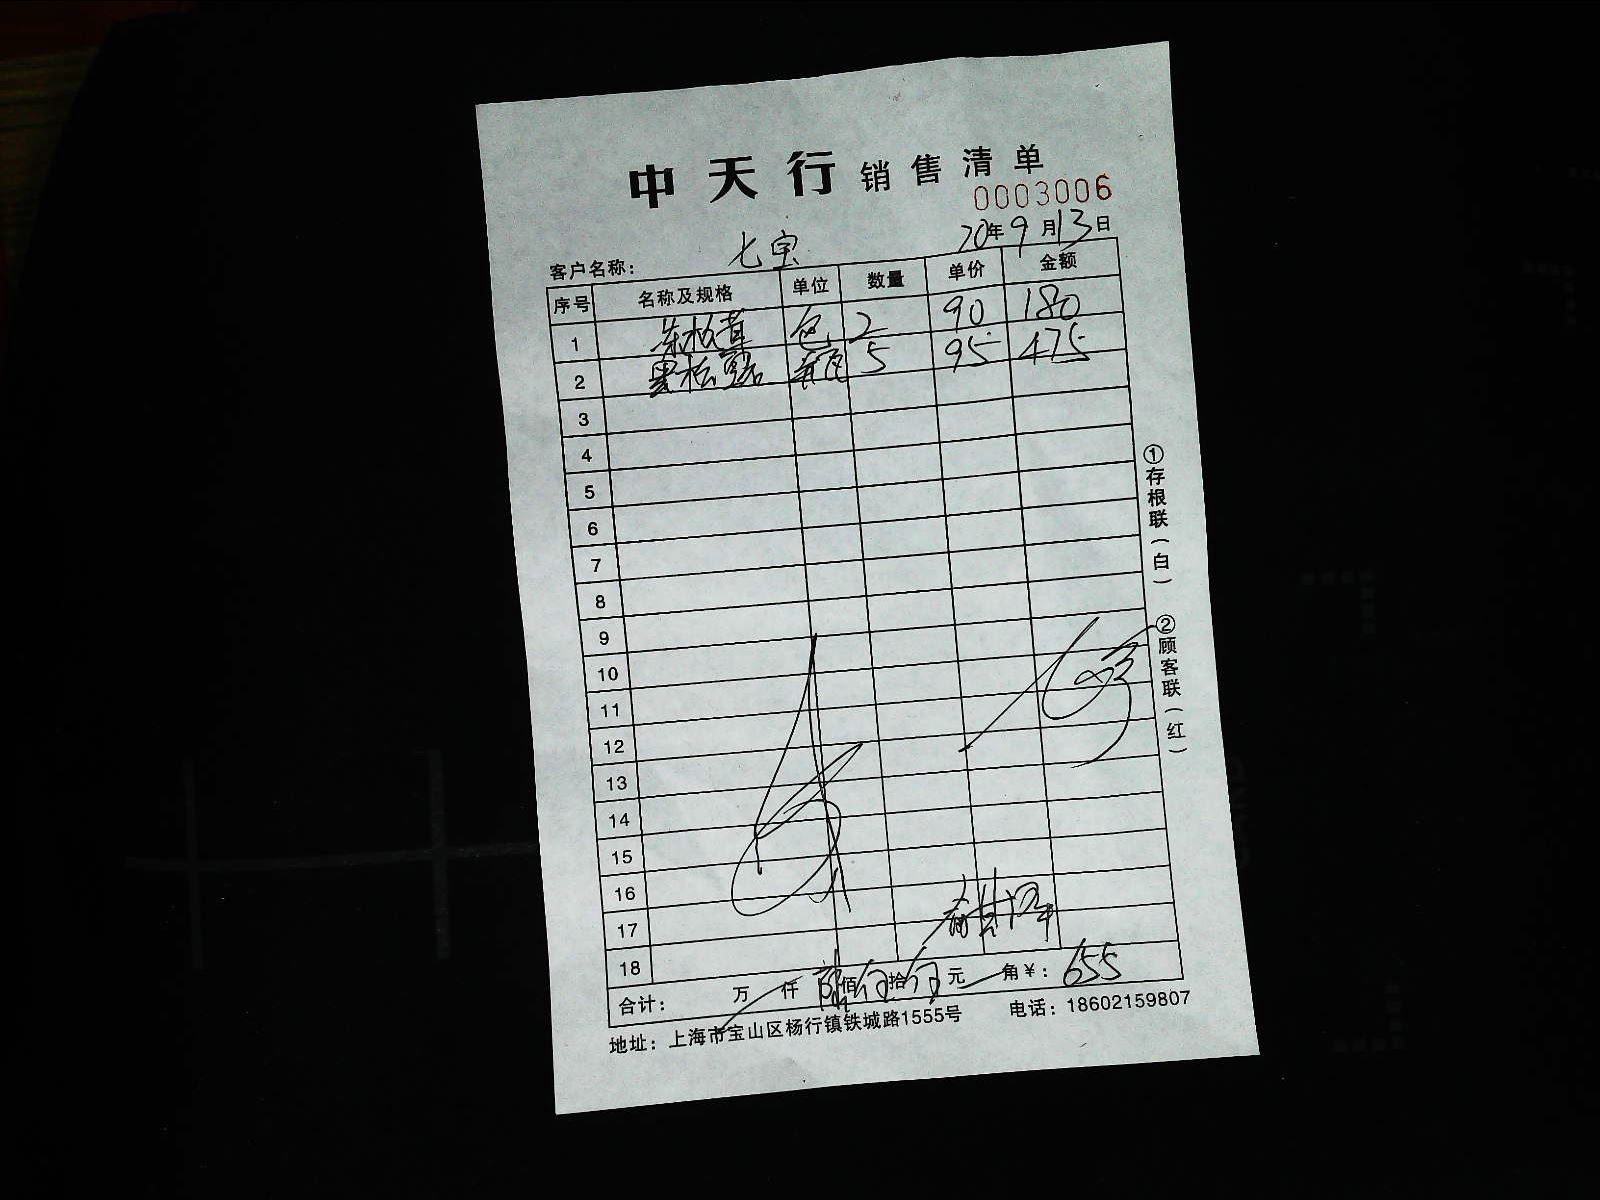 中天行销售清单
0003006
客户名称： 七宝 20年9月13日
序号 名称及规格 单位 数量 单价 金额
1 冻松茸 包 2 90 180
2 黑松露 瓶 5 95 475
3
4
5
6
7
8
9
10
11
12
13
14
15
16
17
18
合计： 万 仟 陆佰伍拾伍元 角￥：655
地址：上海市宝山区杨行镇铁城路1555号 电话：18602159807
①存根联（白） ②顾客联（红）